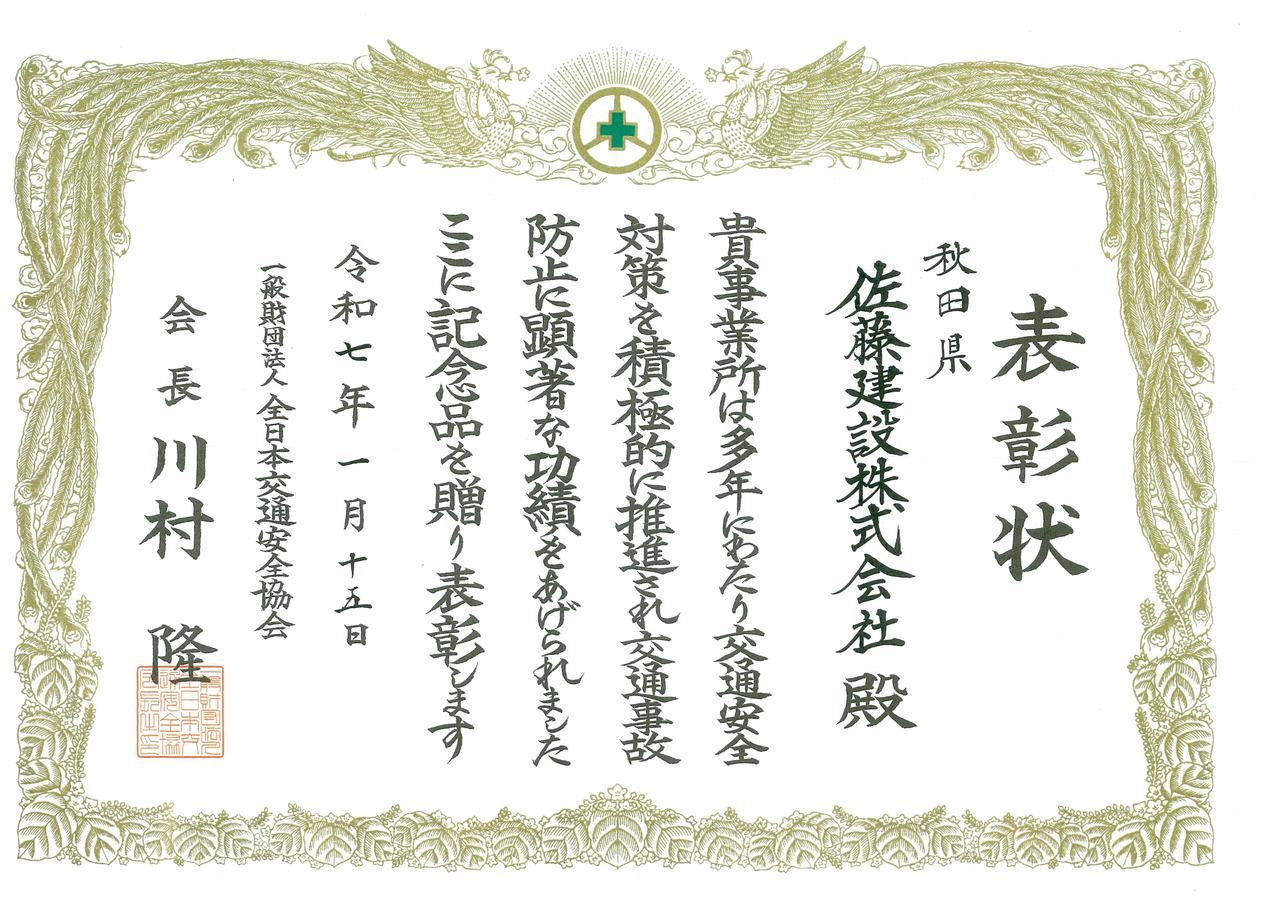 表彰状
秋田県
佐藤建設株式会社 殿
貴事業所は多年にわたり交通安全
対策を積極的に推進され交通事故
防止に顕著な功績をあげられました
ここに記念品を贈り表彰します
令和七年一月十五日
一般財団法人 全日本交通安全協会
会長 川村 隆